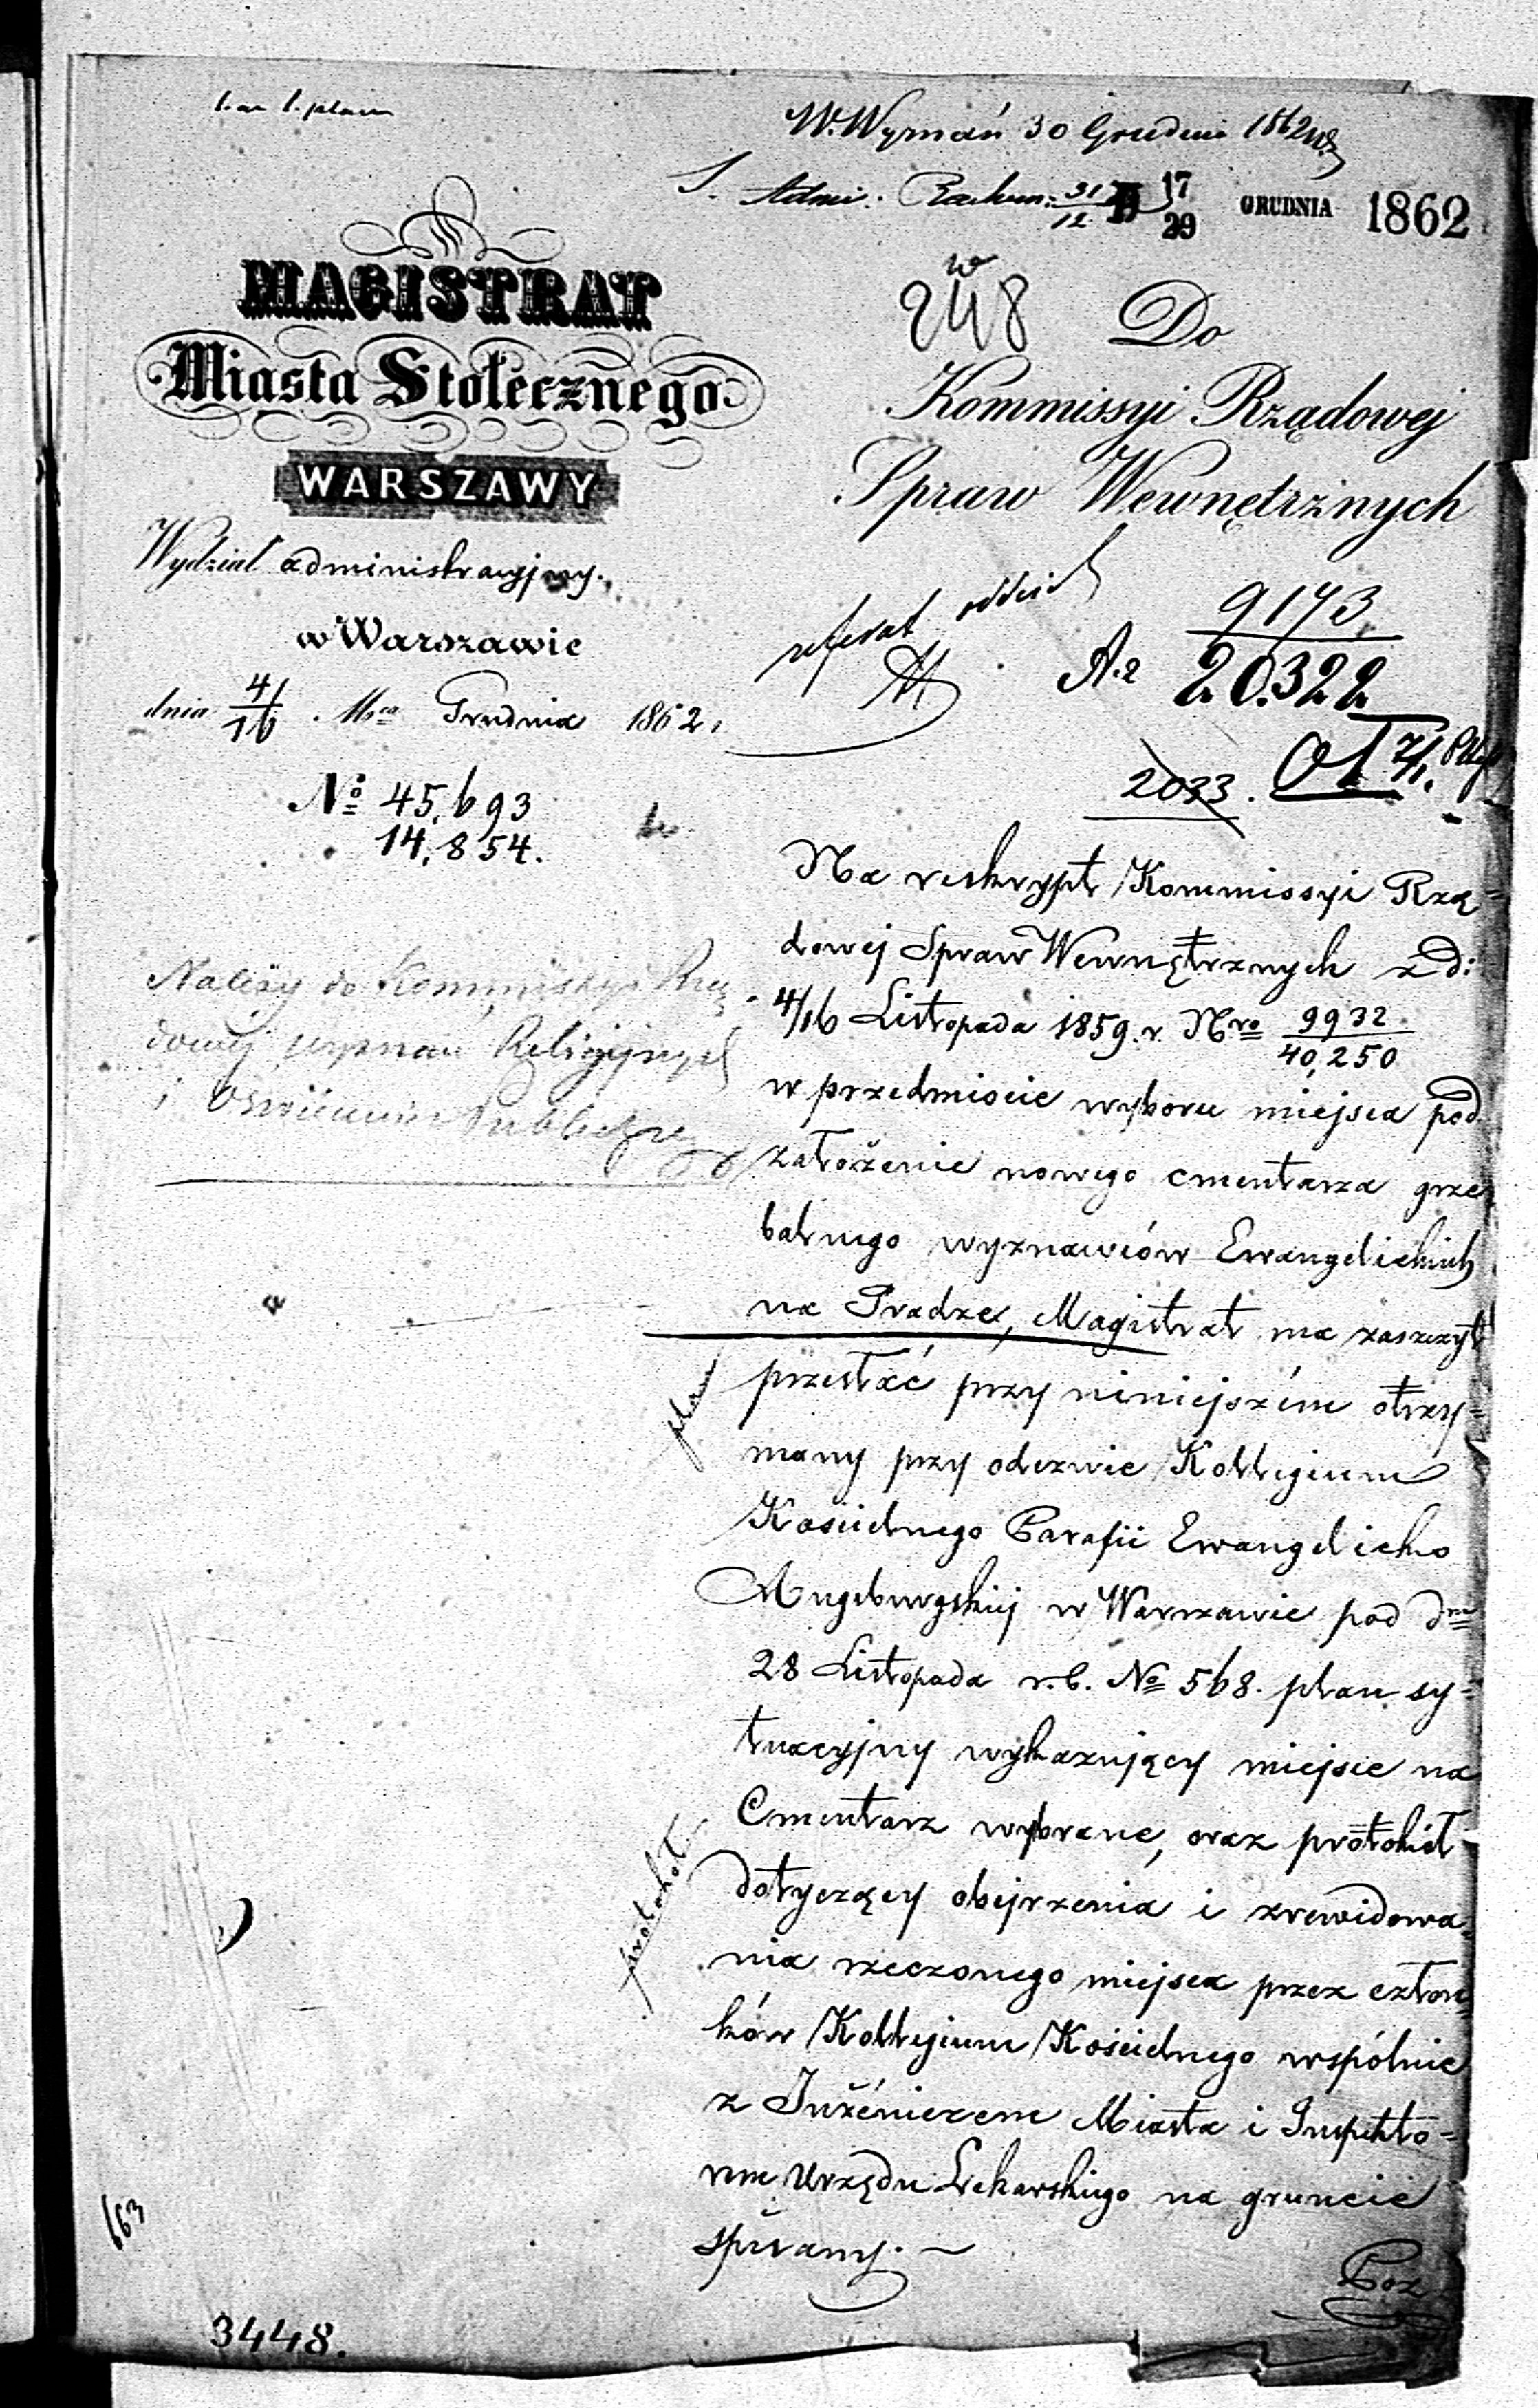 W. Wyznań 30 Grudnia 1862
S. Admi: Rachun: 31/12 17/29 GRUDNIA 1862
MAGISTRAT
Miasta Stołecznego
WARSZAWY
Wydział administracyjny.
w Warszawie
dnia 4/16 Mca Grudnia 1862.
No 45,693
14,854.
Należy do Kommissyi Rzą
dowej wyznań Religijnych
i Oświecenia Publicznego
w
248 Do
Kommissyi Rządowej
Spraw Wewnętrznych
referat oddział
9173
20322
2033.
Na reskrypt Kommissyi Rzą=
dowej Spraw Wewnętrznych z d:
4/16 Listopada 1859 r. Nro 9932/40,250
w przedmiocie wyboru miejsca pod
założenie nowego cmentarza grze
balnego wyznawców Ewangelickich
na Pradze, Magistrat ma zaszczyt
przesłać przy niniejszém otrzy=
many przy odezwie Kollegium
Kościelnego Parafii Ewangelicko
Augsburgskiej w Warszawie pod dm
28 Listopada r.b. No 568. plan sy=
tuacyjny wykazujący miejsce na
Cmentarz wybrane, oraz protokół
dotyczący obejrzenia i zrewidowa
nia rzeczonego miejsca przez człon
ków Kollegium Kościelnego wspólnie
z Inżénierem Miasta i Inspekto=
rem Urzędu Lekarskiego na gruncie
spisany. —
plan
protokół
663
3448.